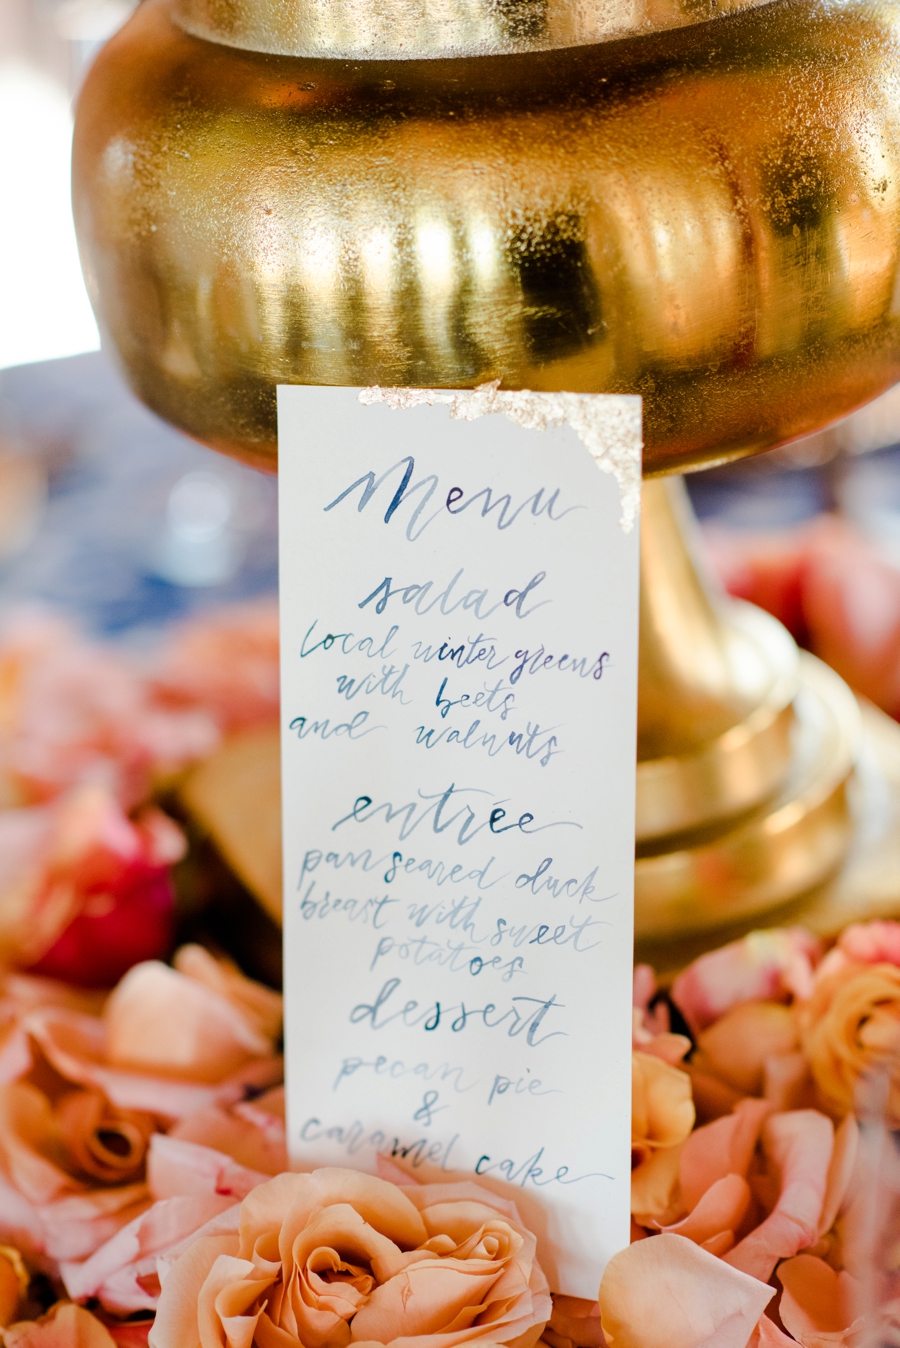 Menu
salad
local winter greens
with beets
and walnuts
entrée
pan seared duck
breast with sweet
potatoes
dessert
pecan pie
&
caramel cake